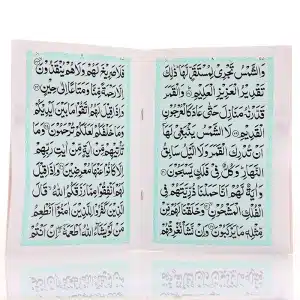 وَالشَّمْسُ تَجْرِيْ لِمُسْتَقَرٍّ لَّهَا ذٰلِكَ
تَقْدِيْرُ الْعَزِيْزِ الْعَلِيْمِ وَالْقَمَرَ
قَدَّرْنٰهُ مَنَازِلَ حَتّٰى عَادَ كَالْعُرْجُوْنِ
الْقَدِيْمِ لَا الشَّمْسُ يَنْۢبَغِيْ لَهَا
اَنْ تُدْرِكَ الْقَمَرَ وَلَا الَّيْلُ سَابِقُ
النَّهَارِ وَكُلٌّ فِيْ فَلَكٍ يَّسْبَحُوْنَ
وَاٰيَةٌ لَّهُمْ اَنَّا حَمَلْنَا ذُرِّيَّتَهُمْ فِي
الْفُلْكِ الْمَشْحُوْنِ وَخَلَقْنَا لَهُمْ مِّنْ
مِّثْلِهٖ مَا يَرْكَبُوْنَ وَاِنْ نَّشَاْ نُغْرِقْهُمْ
فَلَا صَرِيْخَ لَهُمْ وَلَا هُمْ يُنْقَذُوْنَ
اِلَّا رَحْمَةً مِّنَّا وَمَتَاعًا اِلٰى حِيْنٍ
وَاِذَا قِيْلَ لَهُمُ اتَّقُوْا مَا بَيْنَ اَيْدِيْكُمْ
وَمَا خَلْفَكُمْ لَعَلَّكُمْ تُرْحَمُوْنَ وَمَا
تَاْتِيْهِمْ مِّنْ اٰيَةٍ مِّنْ اٰيٰتِ رَبِّهِمْ
اِلَّا كَانُوْا عَنْهَا مُعْرِضِيْنَ وَاِذَا قِيْلَ
لَهُمْ اَنْفِقُوْا مِمَّا رَزَقَكُمُ اللّٰهُ قَالَ
الَّذِيْنَ كَفَرُوْا لِلَّذِيْنَ اٰمَنُوْا اَنُطْعِمُ
مَنْ لَّوْ يَشَآءُ اللّٰهُ اَطْعَمَهٗ اِنْ اَنْتُمْ